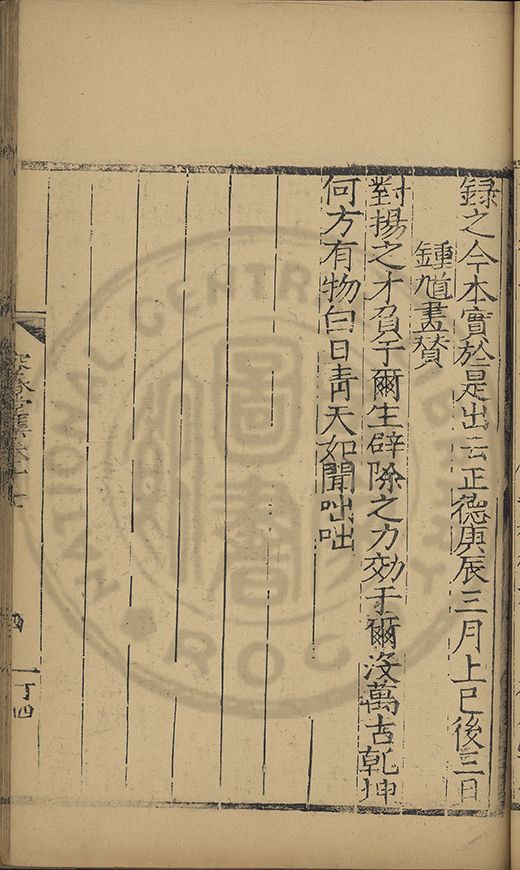 録之今本實於是出云正德庚辰三月上巳後三日
鍾馗畫贊
對揚之才負于爾生辟除之力効于爾沒萬古乾坤
何方有物白日青天如聞咄咄
丁四
NATIONAL CENTRAL LIBRARY
R.O.C.